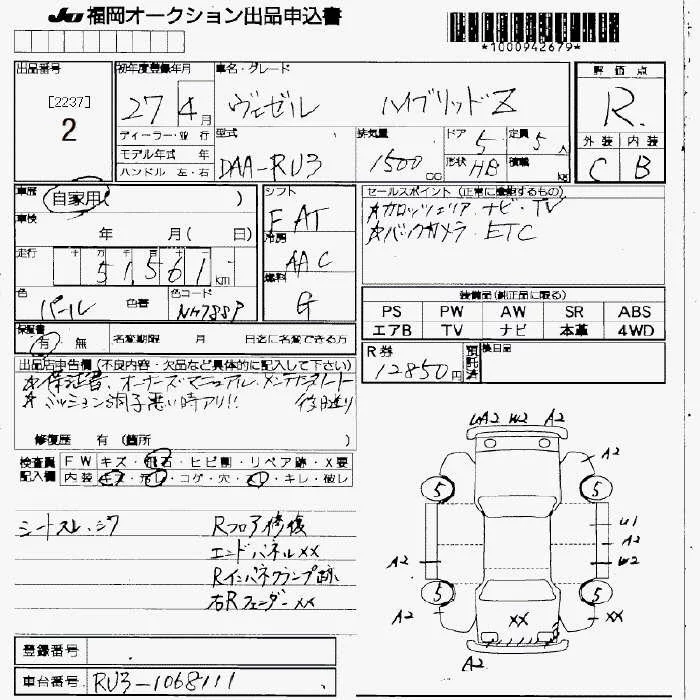 JU 福岡オークション出品申込書
*1000942679*
出品番号
[2237]
2
初年度登録年月
27 4月
車名・グレード
ヴェゼル ハイブリッドZ
評価点
R
外装 内装
C B
ディーラー・並行
モデル年式 年
ハンドル 左・右
型式
DAA-RU3
排気量
1500cc
ドア 5
形状 HB
定員 5人
積載 kg
車歴
自家用( )
車検
年 月( 日)
走行
51,561km
色
パール
色替
色コード
NH788P
シフト
FAT
冷房
AAC
燃料
G
セールスポイント(正常に機能するもの)
☆カロッツェリア ナビ・TV
☆バックカメラ ETC
装備品(純正品に限る)
PS PW AW SR ABS
エアB TV ナビ 本革 4WD
保証書
有 無
名変期限 月 日迄に名変できる方
R券
12850円
預託済
検日品
出品店申告欄(不良内容・欠品など具体的に記入して下さい)
☆保証書、オーナーズマニュアル・メンテナンスノート
☆ミッション調子悪い時アリ!! 後日送り
修復歴 有(箇所 )
検査員記入欄
FW キズ・飛石・ヒビ割・リペア跡・X要
内装 キズ・汚レ・コゲ・穴・スレ・キレ・破レ
シートスレ・シワ
Rフロア修復
エンドパネルXX
Rインパネクランプ跡
右Rフェンダー XX
登録番号
車台番号 RU3-1068111
UA2 W2 A2
A2
5 5
U1
A2
A2 W2
5 5
A2 XX XX
A2